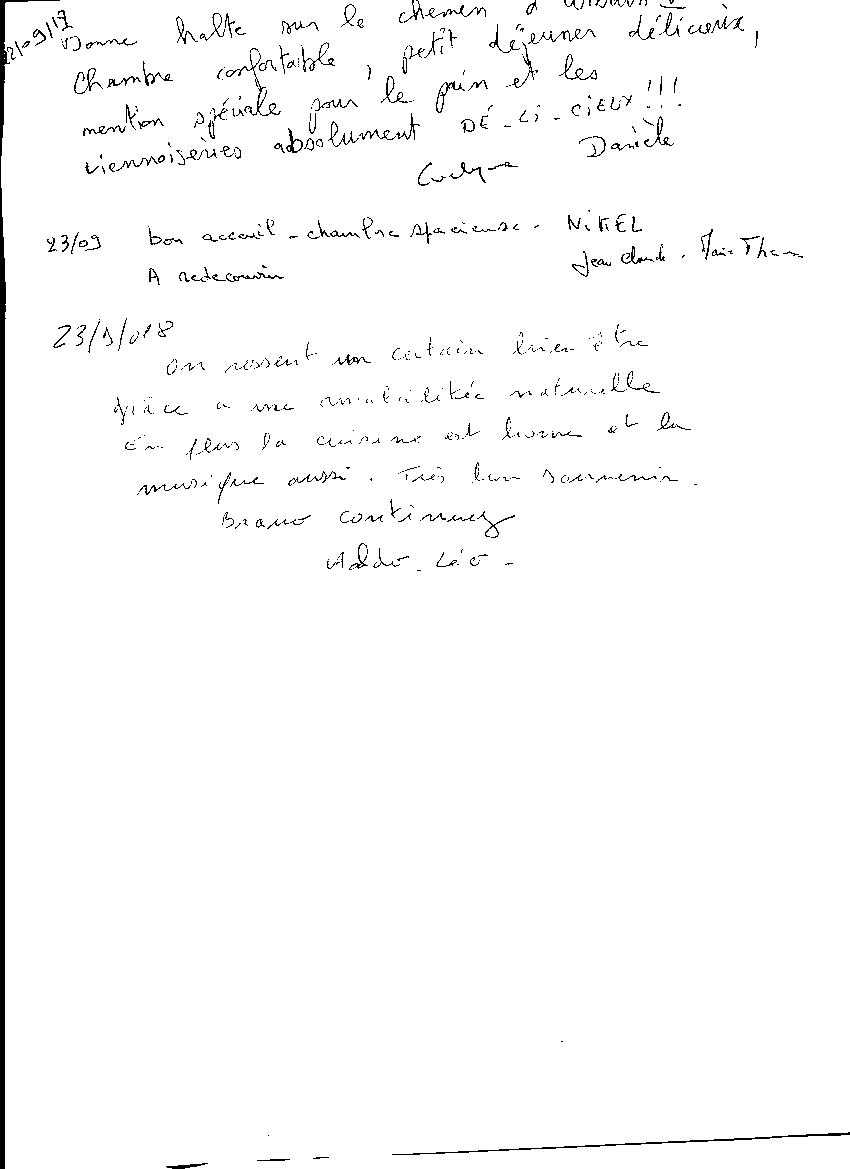 21/09/17 Bonne halte sur le chemin d'Urbain V
Chambre confortable, petit déjeuner délicieux,
mention spéciale pour le pain et les
viennoiseries absolument DÉ-Li-CiEUX!!!
Evelyne Danièle
23/09 bon accueil - chambre spacieuse - NiKEL
A redecouvrir Jean Claude - Marie Th
23/9/018
On ressent un certain bien être
grâce a une amabilitée naturelle
En plus la cuisine est bonne et la
musique aussi. Très bon souvenir.
Bravo continuez
Aldo - Léo -